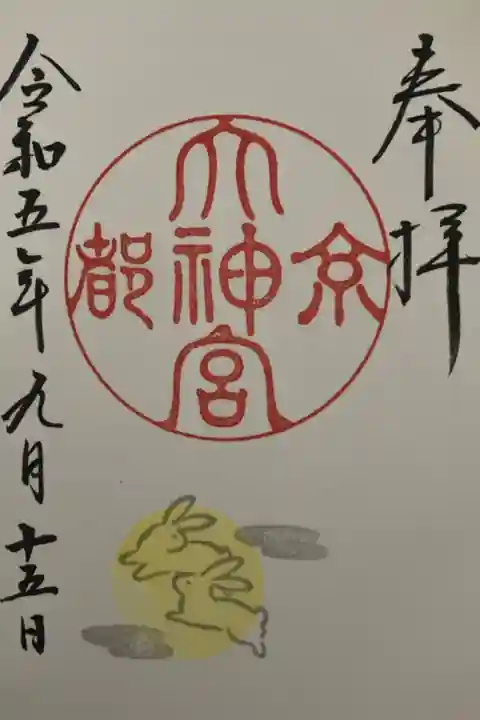 奉拝
京都
大神宮
令和五年九月十五日